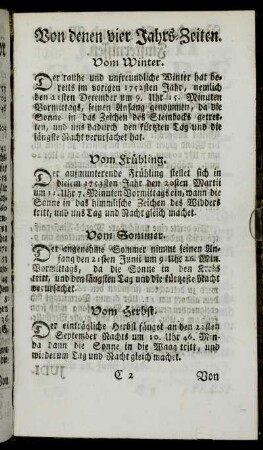 Von denen vier Jahrs-Zeiten.
Vom Winter.
Der rauhe und unfreundliche Winter hat be-
reits im vorigen 1752sten Jahr, nemlich
den 21sten December um 9. Uhr 15. Minuten
Vormittags, seinen Anfang genommen, da die
Sonne in das Zeichen des Steinbocks getret-
ten, und uns dadurch den kürtzten Tag und die
längste Nacht verursachet hat.
Vom Frühling.
Der aufmunterende Frühling stellet sich in
diesem 1753sten Jahr den 20sten Martii
um 11. Uhr 7. Minuten Vormittags ein, wann die
Sonne in das himmlische Zeichen des Widders
tritt, und uns Tag und Nacht gleich machet.
Vom Sommer.
Der angenehme Sommer nimmt seinen An-
fang den 21sten Junii um 9. Uhr 26. Min.
Vormittags, da die Sonne in den Krebs
tritt, und den längsten Tag und die kürtzeste Nacht
verursachet.
Vom Herbst.
Der einträgliche Herbst fängt an den 22sten
September Nachts um 10. Uhr 46. Min.
da dann die Sonne in die Waag tritt, und
wiederum Tag und Nacht gleich machet.
C 2 Von